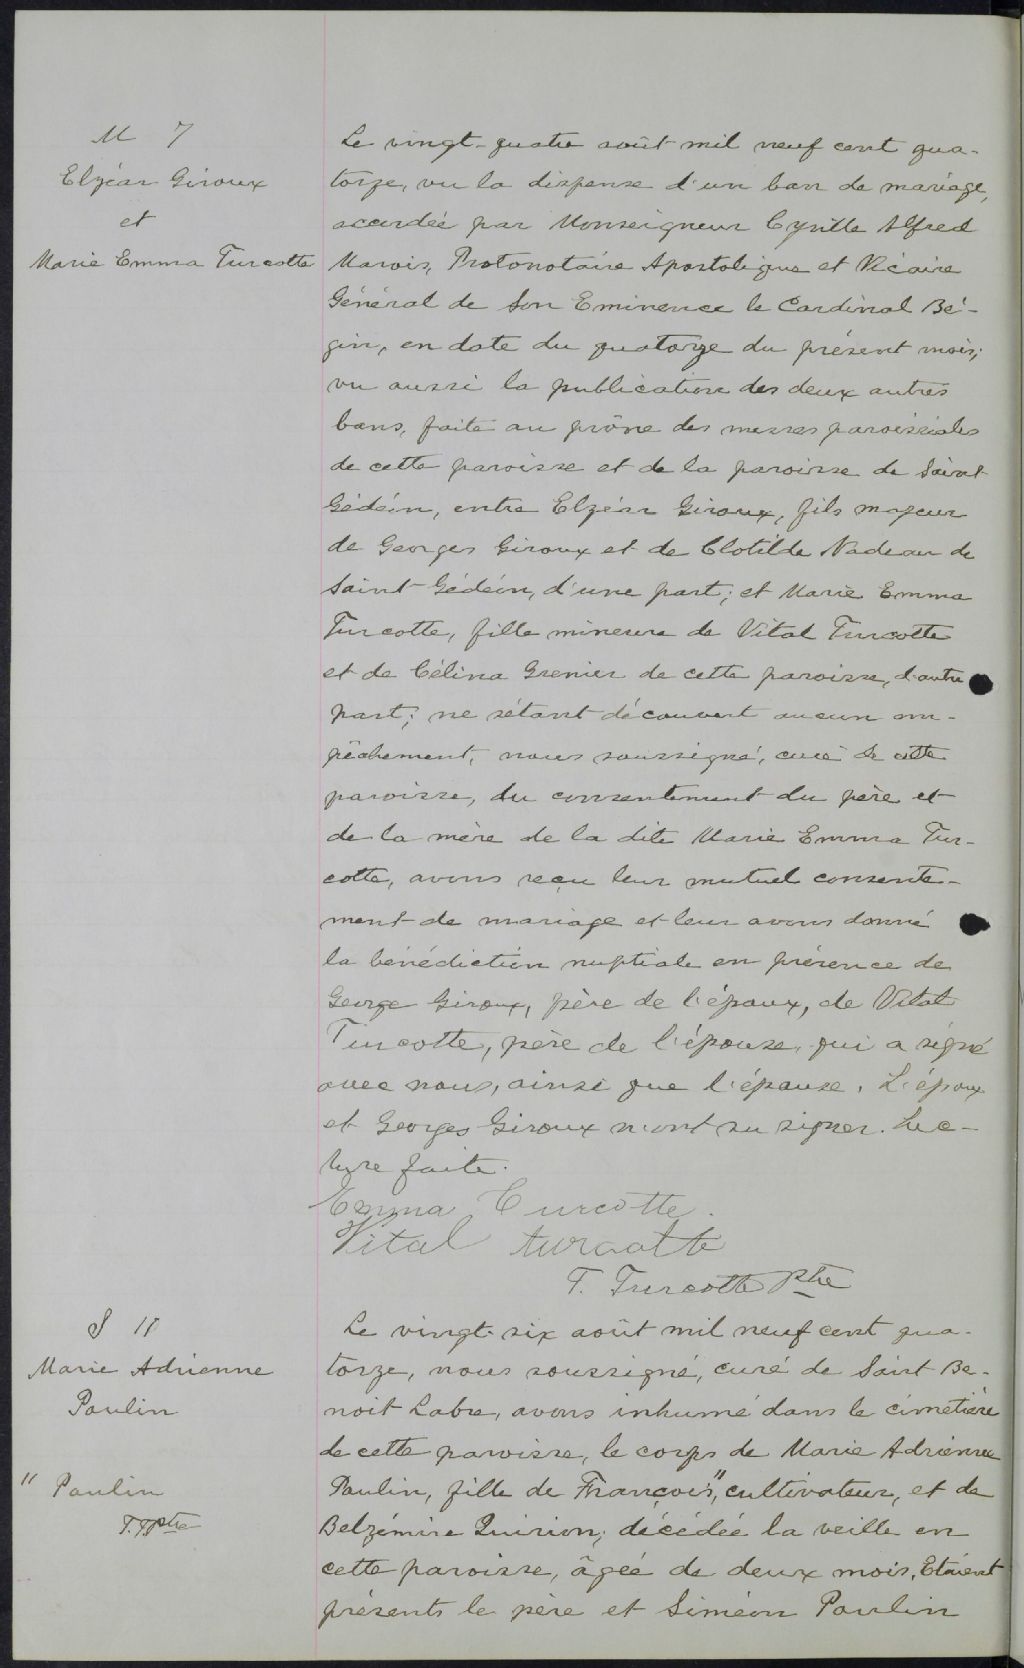 M 7
Elzéar Giroux
et
Marie Emma Turcotte
Le vingt-quatre août mil neuf cent qua-
torze, vu la dispense d'un ban de mariage,
accordée par Monseigneur Cyrille Alfred
Marois, Protonotaire Apostolique et Vicaire
Général de Son Eminence le Cardinal Bé-
gin, en date du quatorze du présent mois;
vu aussi la publication des deux autres
bans, faite au prône des messes paroissiales
de cette paroisse et de la paroisse de Saint
Gédéon, entre Elzéar Giroux, fils majeur
de Georges Giroux et de Clotilde Nadeau de
Saint-Gédéon, d'une part; et Marie Emma
Turcotte, fille mineure de Vital Turcotte
et de Célina Grenier de cette paroisse, d'autre
part; ne s'étant découvert aucun em-
pêchement, nous soussigné, curé de cette
paroisse, du consentement du père et
de la mère de la dite Marie Emma Tur-
cotte, avons reçu leur mutuel consente-
ment de mariage et leur avons donné
la bénédiction nuptiale en présence de
George Giroux, père de l'époux, de Vital
Turcotte, père de l'épouse, qui a signé
avec nous, ainsi que l'épouse. L'époux
et Georges Giroux n'ont su signer. Lec-
ture faite.
Emma Turcotte.
Vital turcotte
T. Turcotte Ptre
S 11
Marie Adrienne
Poulin
" Poulin
T.T. ptre
Le vingt-six août mil neuf cent qua-
torze, nous soussigné, curé de Saint Be-
noit Labre, avons inhumé dans le cimetière
de cette paroisse, le corps de Marie Adrienne
Poulin, fille de François", cultivateur, et de
Belzémire Quirion, décédée la veille en
cette paroisse, âgée de deux mois. Etaient
présents le père et Siméon Poulin